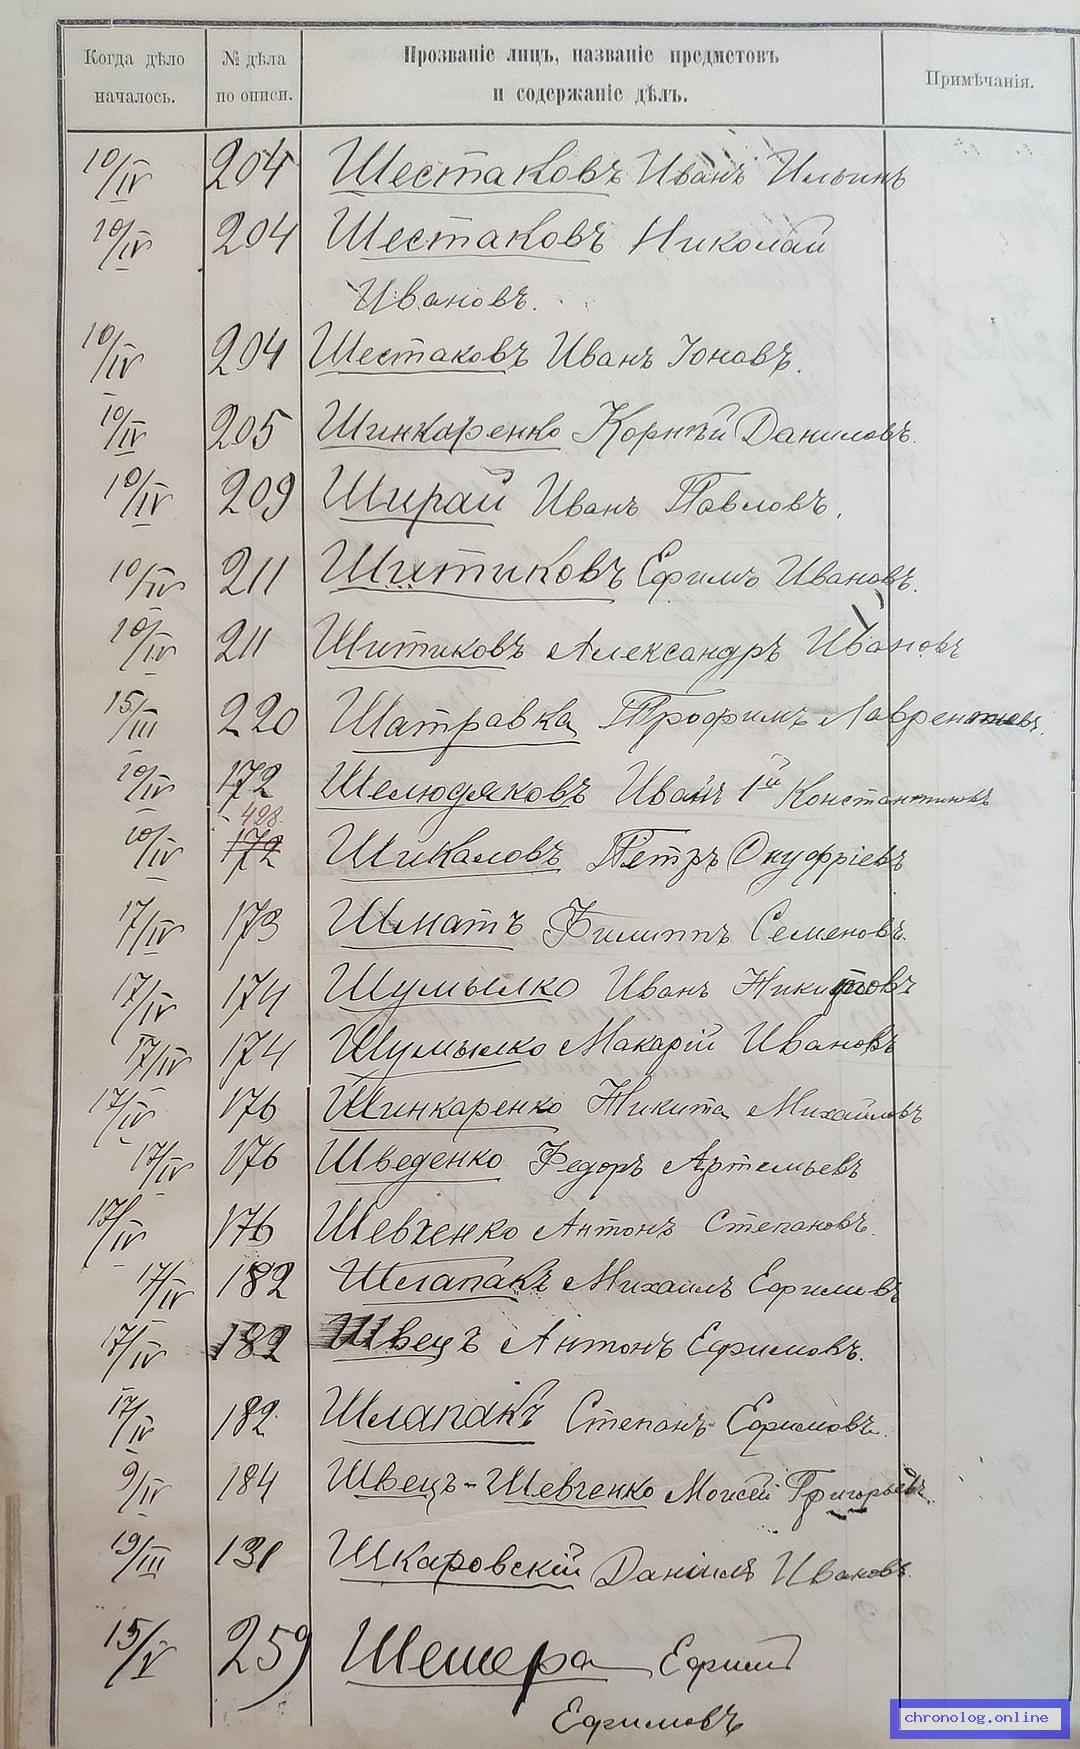 Когда дѣло началось.
№ дѣла по описи.
Прозваніе лицъ, названіе предметовъ и содержаніе дѣлъ.
Примѣчанія.
10/IV 204 Шестаковъ Иванъ Ильинъ
10/IV 204 Шестаковъ Николай
Ивановъ.
10/IV 204 Шестаковъ Иванъ Іоновъ.
10/IV 205 Шинкаренко Корнѣй Даниловъ.
10/IV 209 Ширай Иванъ Павловъ.
10/IV 211 Шитиковъ Ефимъ Ивановъ.
10/IV 211 Шитиковъ Александръ Ивановъ
15/III 220 Шатравка Трофимъ Лаврентьевъ.
10/IV 172 Шелюдяковъ Иванъ 1й Константиновъ
428.
10/IV 172 Шикаловъ Петръ Онуфріевъ
17/IV 173 Шматъ Филиппъ Семеновъ.
17/IV 174 Шумылко Иванъ Никитовъ
17/IV 174 Шумылко Макарій Ивановъ
17/IV 176 Шинкаренко Никита Михайловъ
17/IV 176 Шведенко Федоръ Артемьевъ
17/IV 176 Шевченко Антонъ Степановъ.
17/IV 182 Шлапакъ Михаилъ Ефимовъ
17/IV 182 Швецъ Антонъ Ефимовъ.
17/IV 182 Шлапакъ Степанъ Ефимовъ.
9/IV 184 Швецъ-Шевченко Моисей Григорьевъ.
19/III 131 Шкаровскій Даніилъ Ивановъ.
15/V 259 Шешера Ефимъ
Ефимовъ
chronolog.online